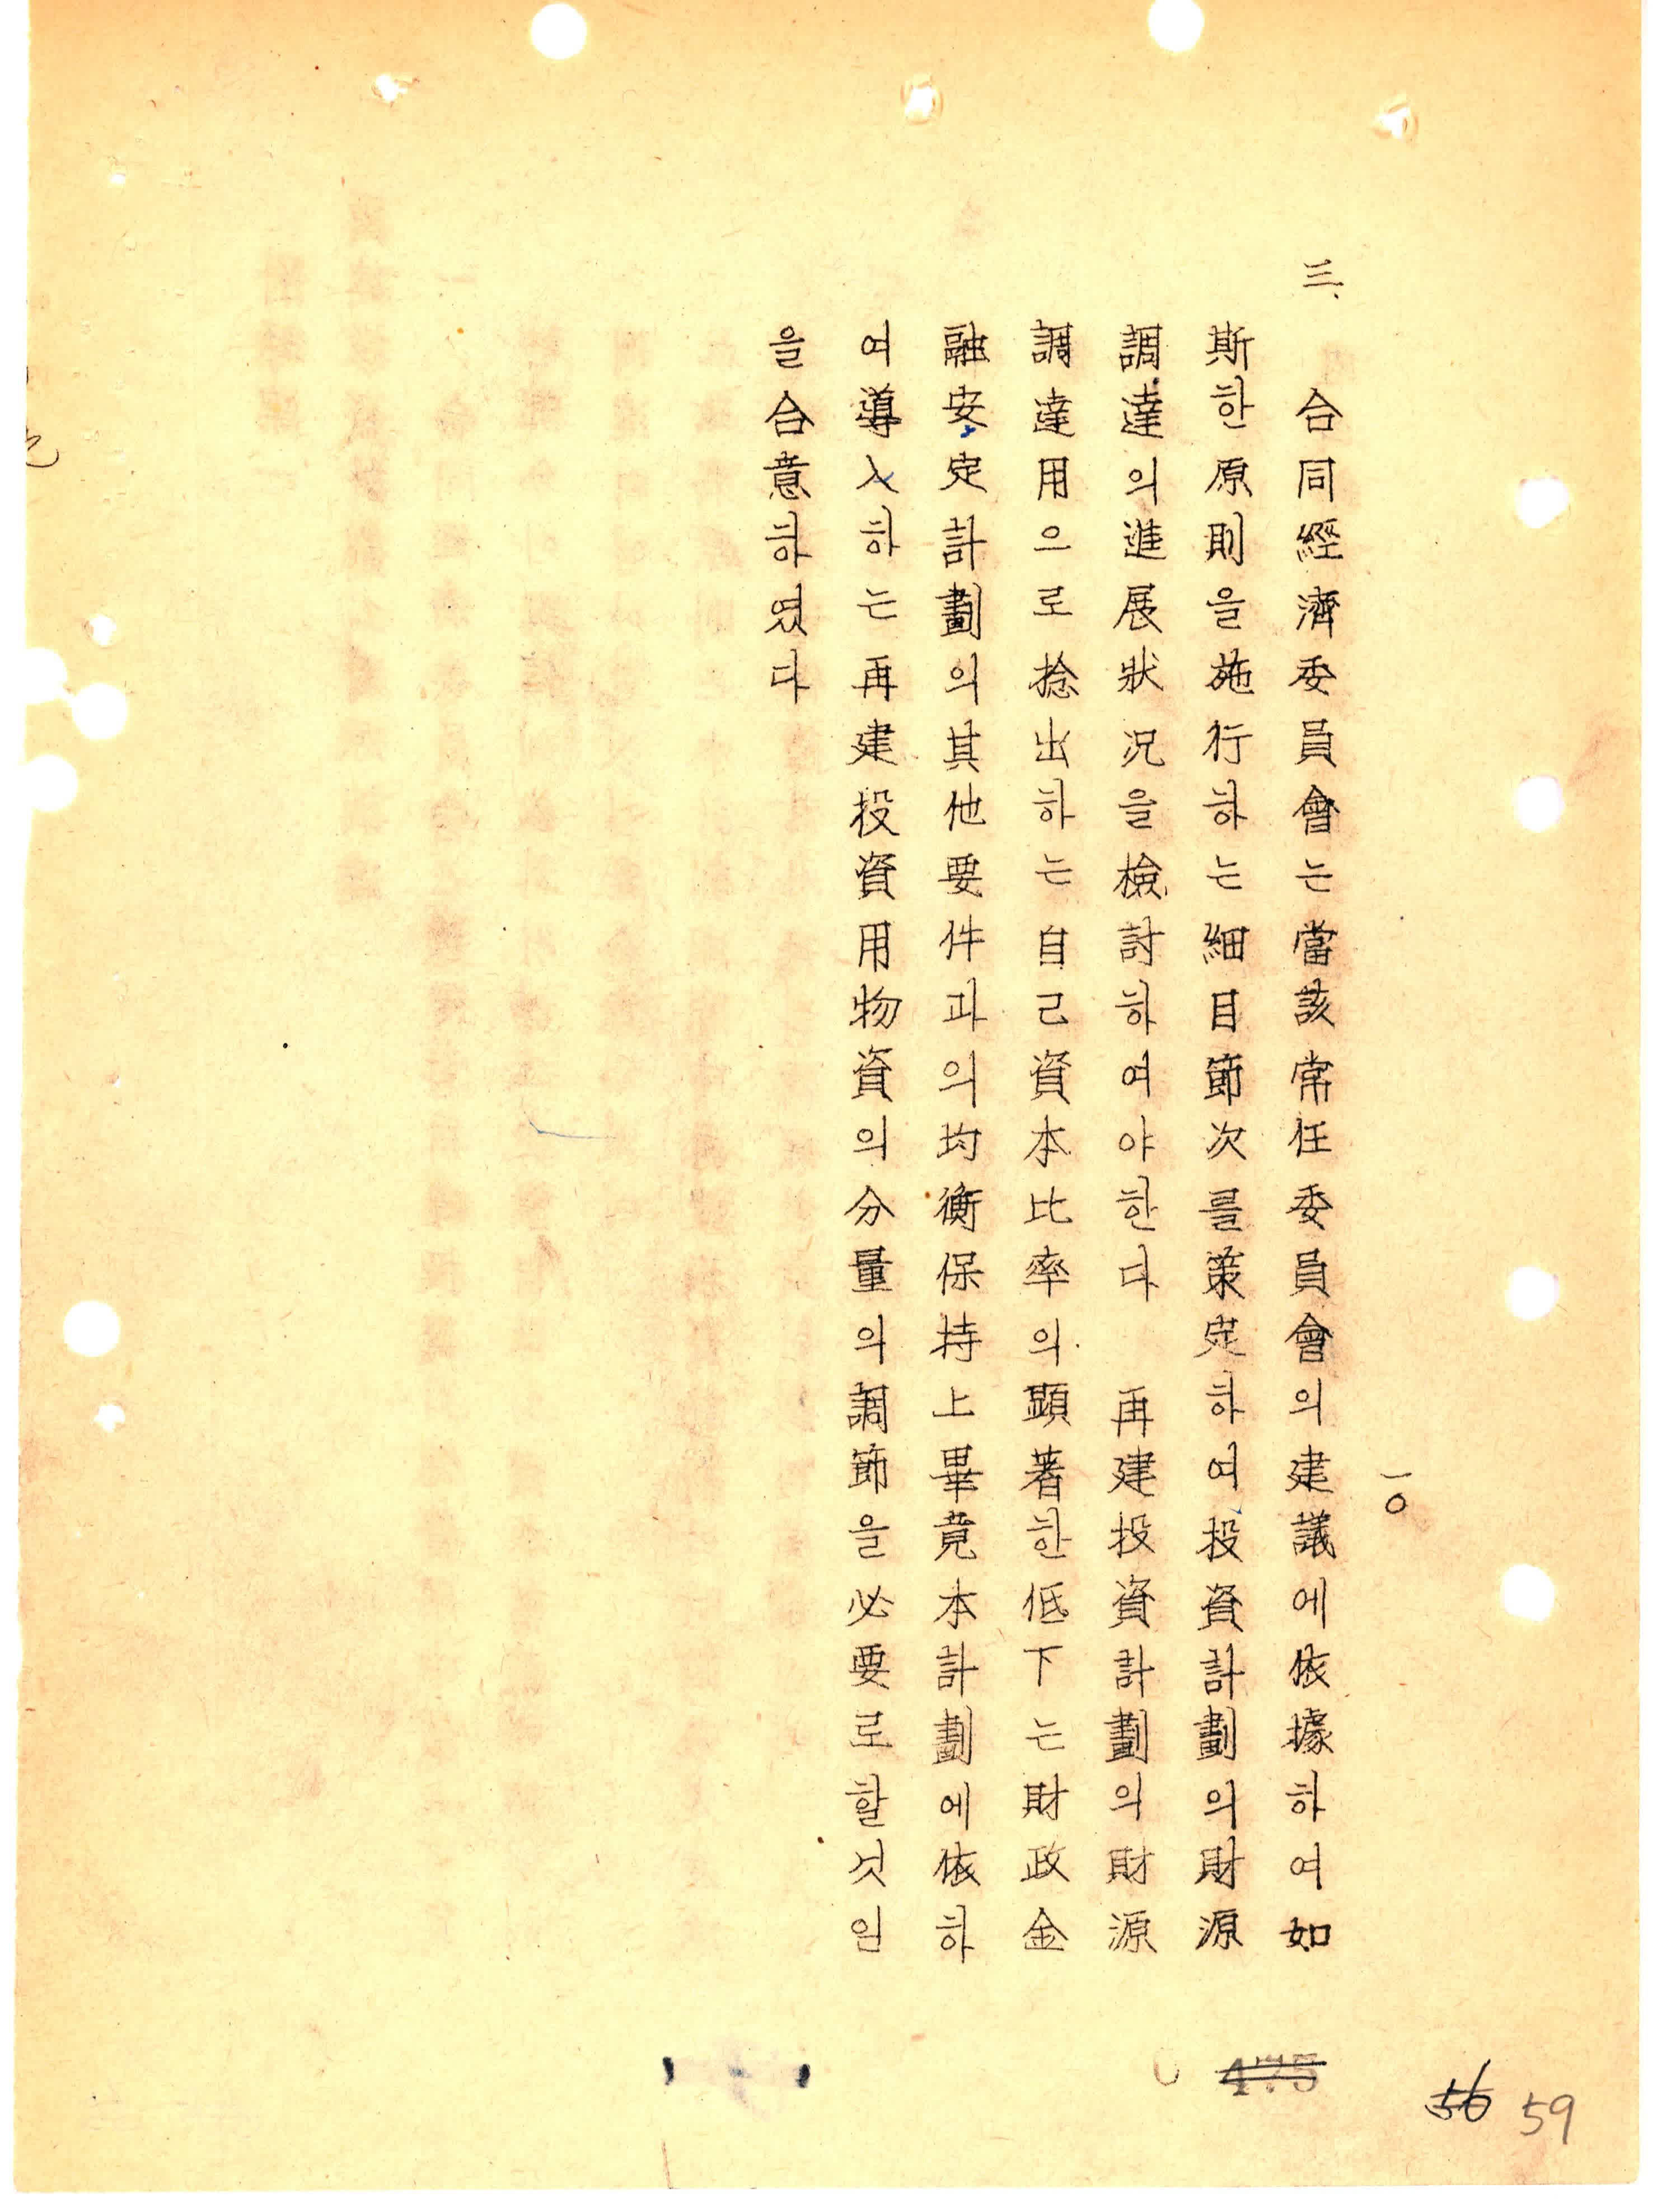 一〇
三、 合同經濟委員會는當該常任委員會의建議에依據하여如
斯한原則을施行하는細目節次를策定하여投資計劃의財源
調達의進展狀況을檢討하여야한다 再建投資計劃의財源
調達用으로捻出하는自己資本比率의顕著한低下는財政金
融安定計劃의其他要件과의均衡保持上畢竟本計劃에依하
여導入하는再建投資用物資의分量의調節을必要로할것임
을合意하였다
475
56 59